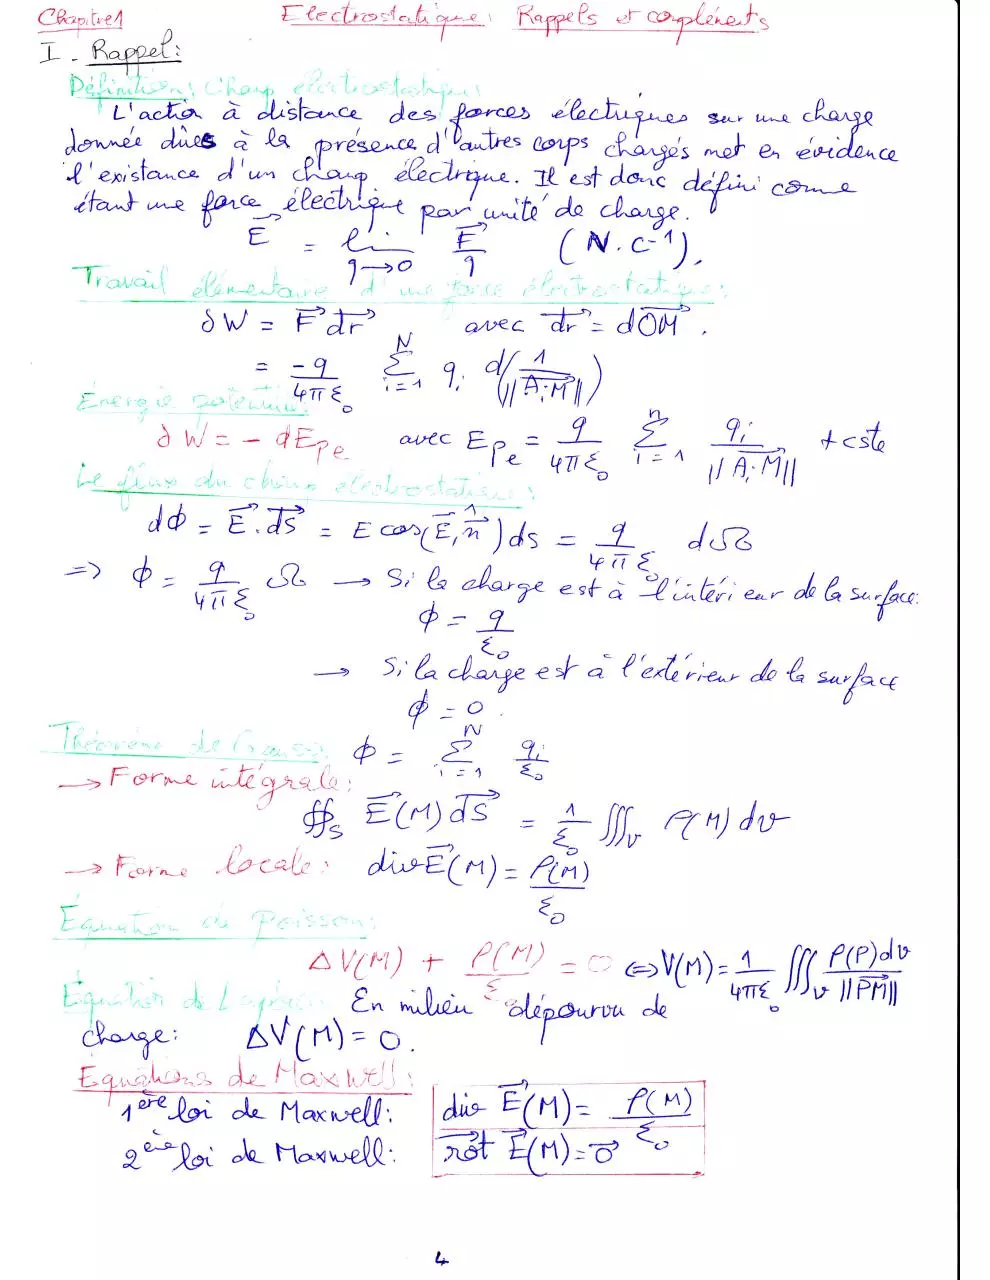 Chapitre 1 Electrostatique: Rappels et compléments
I - Rappel:
Définition: Champ électrostatique:
L'action à distance des forces électriques sur une charge
donnée dûes à la présence d'autres corps chargés met en évidence
l'existance d'un champ électrique. Il est donc défini come
étant une force électrique par unité de charge.
E⃗ = lim_{q→0} F⃗/q (N.C-1).
Travail élémentaire d'une force électrostatique:
δW = F⃗ dr⃗ avec dr⃗ = dOM⃗.
= -q/4πε₀ Σ_{i=1}^{N} qᵢ d(1/||AᵢM⃗||)
Énergie potentielle:
δW = - dEpe avec Epe = q/4πε₀ Σ_{i=1}^{n} qᵢ/||AᵢM⃗|| + cste
Le flux du champ électrostatique:
dϕ = E⃗.dS⃗ = E cos(E⃗,n⃗) ds = q/4πε₀ dΩ
=> ϕ = q/4πε₀ Ω → Si la charge est à l'intérieur de la surface:
ϕ = q/ε₀
→ Si la charge est à l'extérieur de la surface
ϕ = 0.
Théorème de Gauss: ϕ = Σ_{i=1}^{N} qᵢ/ε₀
→ Forme intégrale:
∯_S E⃗(M) dS⃗ = 1/ε₀ ∭_v ρ(M) dv
→ Forme locale: div E⃗(M) = ρ(M)/ε₀
Équation de Poisson:
ΔV(M) + ρ(M)/ε₀ = 0 ⇔ V(M) = 1/4πε₀ ∭_v ρ(P)dv/||PM⃗||
Équation de Laplace: En milieu dépourvu de
charge: ΔV(M) = 0.
Equations de Maxwell:
1ère loi de Maxwell: div E⃗(M) = ρ(M)/ε₀
2ème loi de Maxwell: rot⃗ E⃗(M) = 0⃗
4